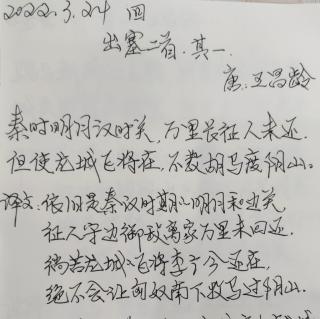 2022.3.24 四
出塞二首·其一.
唐:王昌龄
秦时明月汉时关,万里长征人未还.
但使龙城飞将在,不教胡马度阴山。
译文:依旧是秦汉时期的明月和边关
征人守边御敌离家万里未回还.
倘若龙城的飞将李广今还在,
绝不会让匈奴南下牧马过阴山.